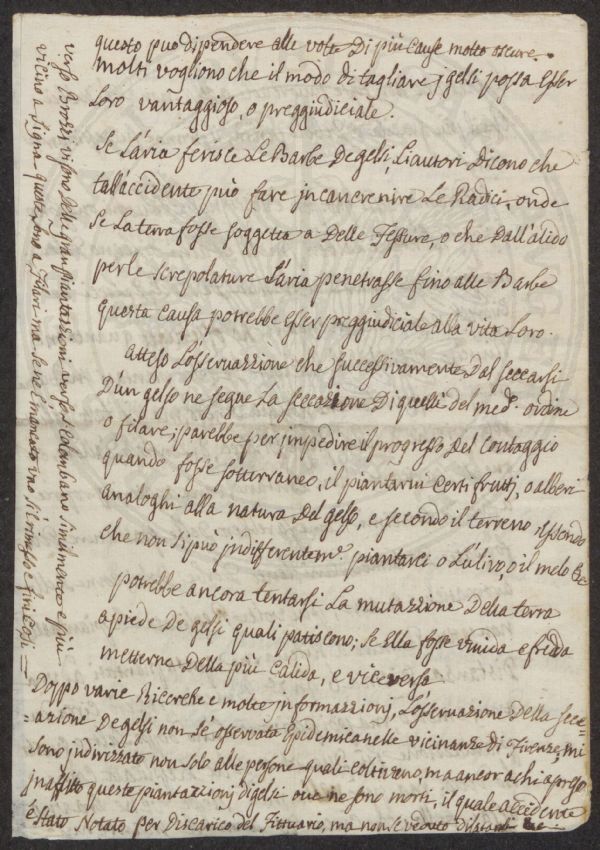 questo può dipendere alle volte Di più Cause molto oscure.
Molti vogliono che il modo di tagliare j gelsi possa Esser
Loro vantaggioso, o preggiudiciale.
Se L'aria ferisce Le Barbe De gelsi, Li autori Dicono che
tall'accidente può fare jncancrenire Le Radici, onde
Se La terra fosse soggetta a Delle Fessure, o che Dall'alido
per le screpolature L'aria penetrasse fino alle Barbe
questa Causa potrebbe Esser preggiudiciale alla vita Loro.
Atteso L'osservazione che successivamente Dal seccarsi
D'un gelso ne segue La seccazione Di quelli del med.º ordine
o filare; parebbe per jmpedire il progresso del contaggio
quando fosse sotterraneo, il piantarvi Certi frutti, o alberi
analoghi alla natura Del gelso, e secondo il terreno, essendo
che non si può jndifferentem.e piantarci o L'ulivo, o il melo &c
potrebbe ancora tentarsi La mutazione Della terra
a piede De gelsi quali patiscono; se Ella fosse umida e fredda
metterne Della più calida, e viceversa
Doppo varie Ricerche e molte jnformazionj, L'osservazione Della secc=
=azione De gelsi non s'è osservata Epidemica nelle vicinanze di Firenze, mi
sono jndirizzato non solo alle persone quali coltivano, ma ancora chi a preso
queste piantazzionj di gelsi ove ne sono morti, il quale accidente
è stato Notato per Discarico del Fittuario, ma non se veduto
verso Brozzi vi sono delle gran piantazioni, verso S. Colombano similmente e più
vicino a Signa, queste sono a Filari ma se ne è mancato uno si è rimesso e finì Così